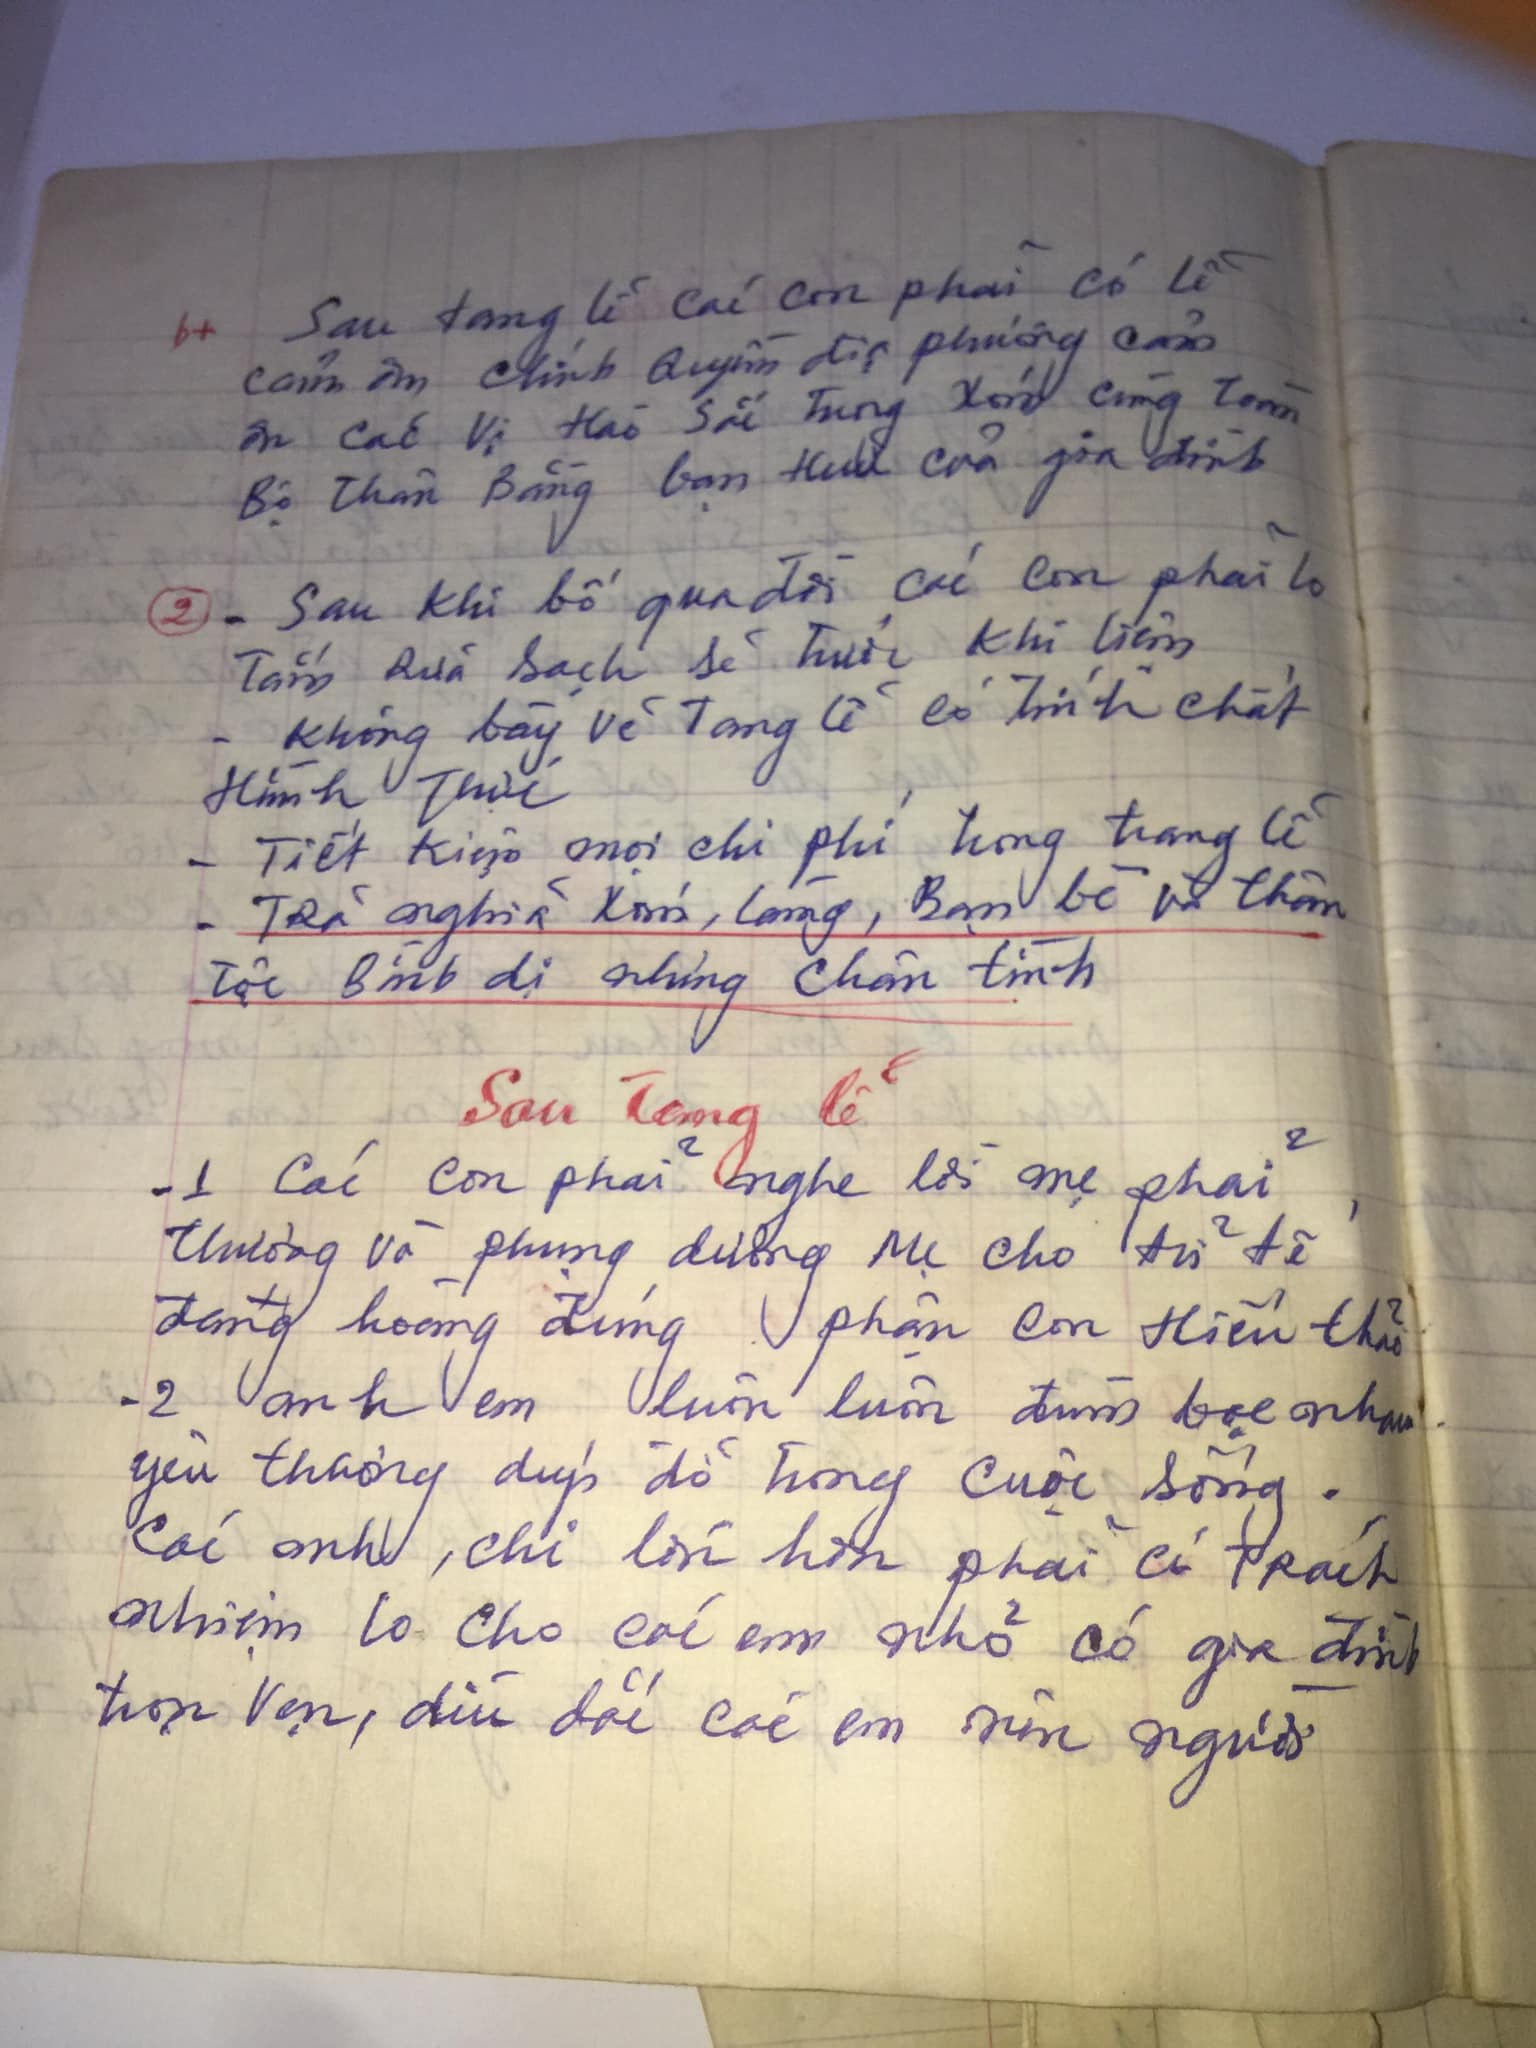 b+ Sau tang lễ các con phải có lễ
cảm ơn chính Quyền địa phương cảm
ơn các vị Hào Sắc trong Xóm cùng toàn
Bộ Thân Bằng bạn Hữu của gia đình
2 - Sau khi bố qua đời các con phải lo
Tắm Rửa Sạch sẽ trước khi liệm
- Không bày vẽ Tang lễ có tính chất
Hình Thức
- Tiết kiệm mọi chi phí trong trang lễ
- TRả nghĩa Xóm, làng, Bạn bè và thân
tộc Bình dị nhưng chân tình
Sau Tang lễ
-1 Các con phải nghe lời mẹ phải,
thương và phụng dưỡng Mẹ cho tử tế
đàng hoàng đúng phận con Hiếu thảo
-2 anh em luôn luôn đùm bọc nhau.
yêu thương dúp đỡ trong cuộc sống.
Các anh, chi lớn hơn phải có tRách
nhiệm lo cho các em nhỏ có gia đình
trọn vẹn, dìu dắt các em nên người